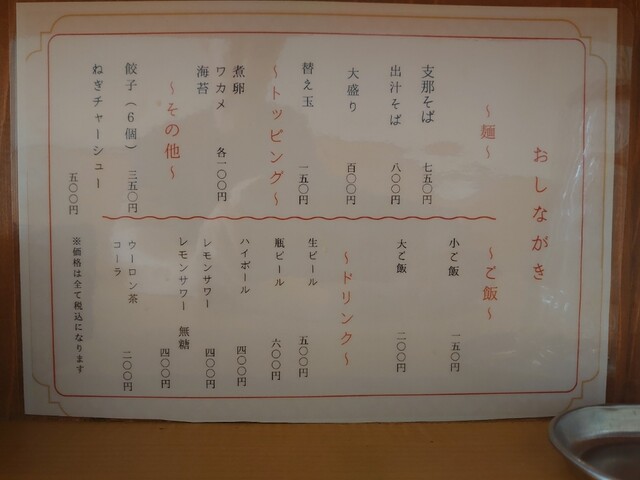 おしながき
～麺～
支那そば 七五〇円
出汁そば 八〇〇円
大盛り 百〇〇円
替え玉 一五〇円
～トッピング～
煮卵
ワカメ 各一〇〇円
海苔
～その他～
餃子（６個） 三五〇円
ねぎチャーシュー 五〇〇円
～ご飯～
小ご飯 一五〇円
大ご飯 二〇〇円
～ドリンク～
生ビール 五〇〇円
瓶ビール 六〇〇円
ハイボール 四〇〇円
レモンサワー 四〇〇円
レモンサワー 無糖 四〇〇円
ウーロン茶
コーラ 二〇〇円
※価格は全て税込になります